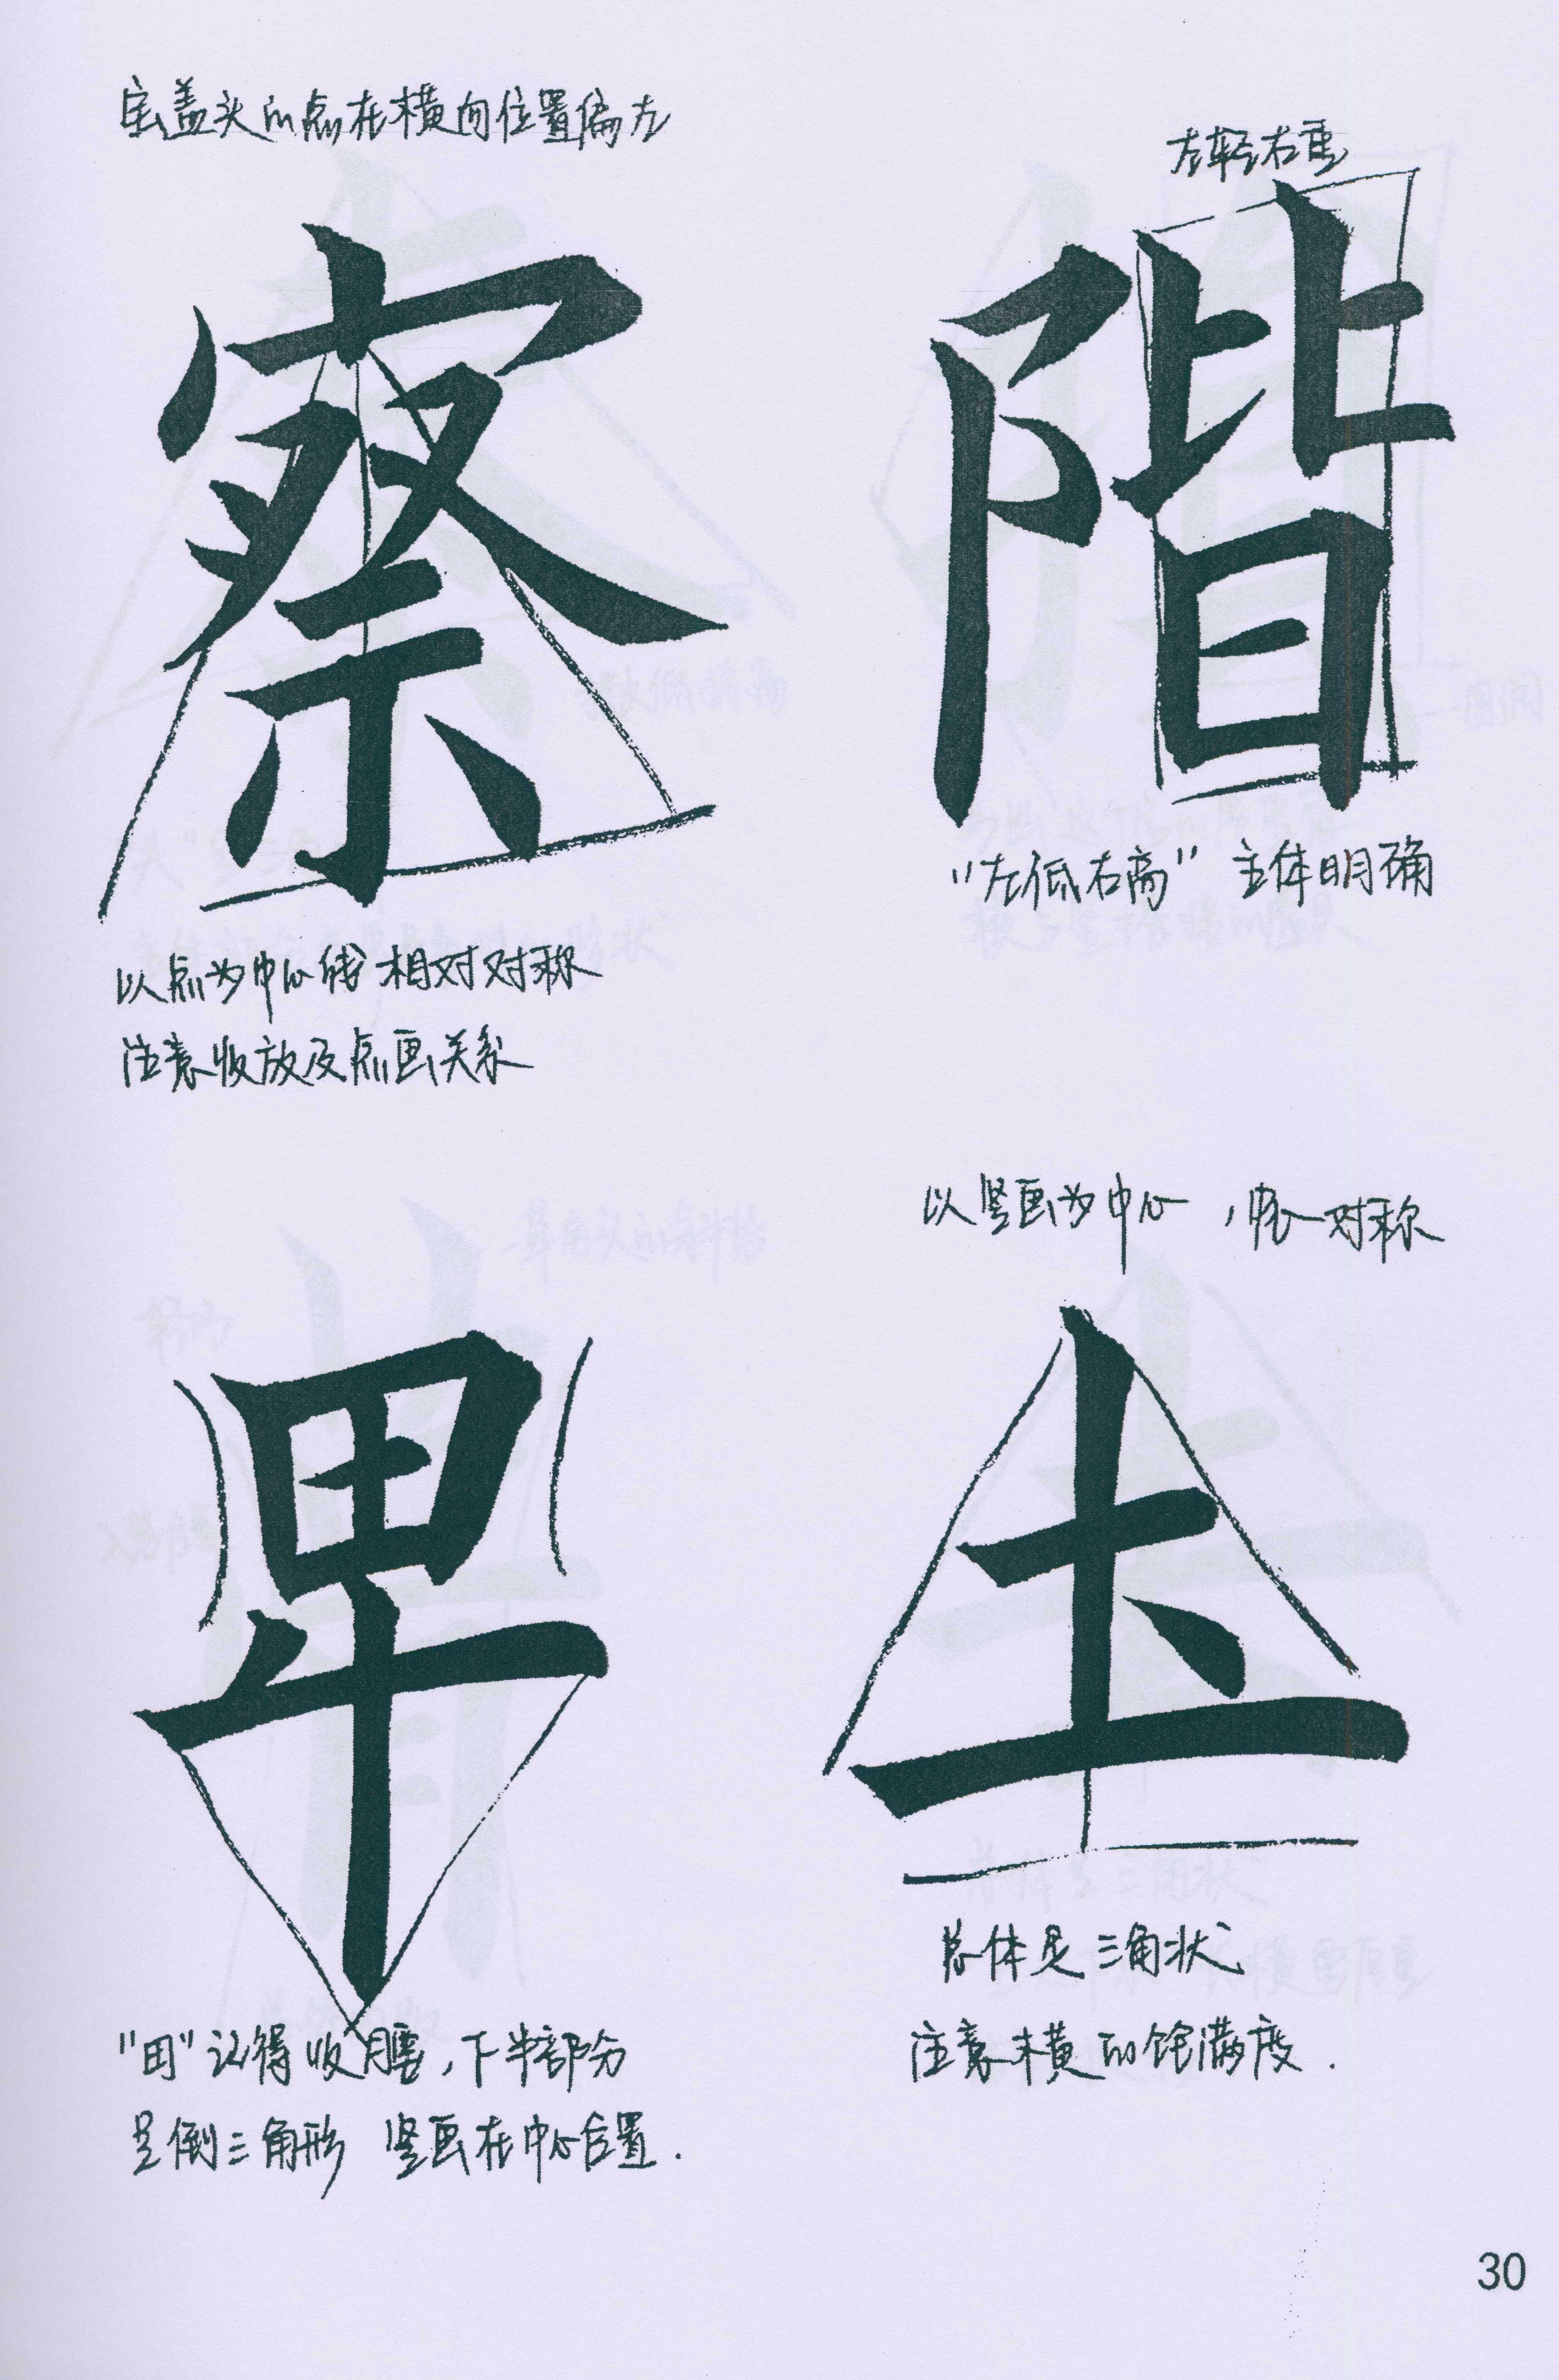 宝盖头的点在横向位置偏左
察
以点为中心线 相对对称
注意收放及点画关系
左轻右重
階
“左低右高” 主体明确
卑
“田”记得收腰,下半部分
呈倒三角形 竖画在中心位置.
以竖画为中心 , 对称
玉
总体是三角状
注意末横的饱满度.
30